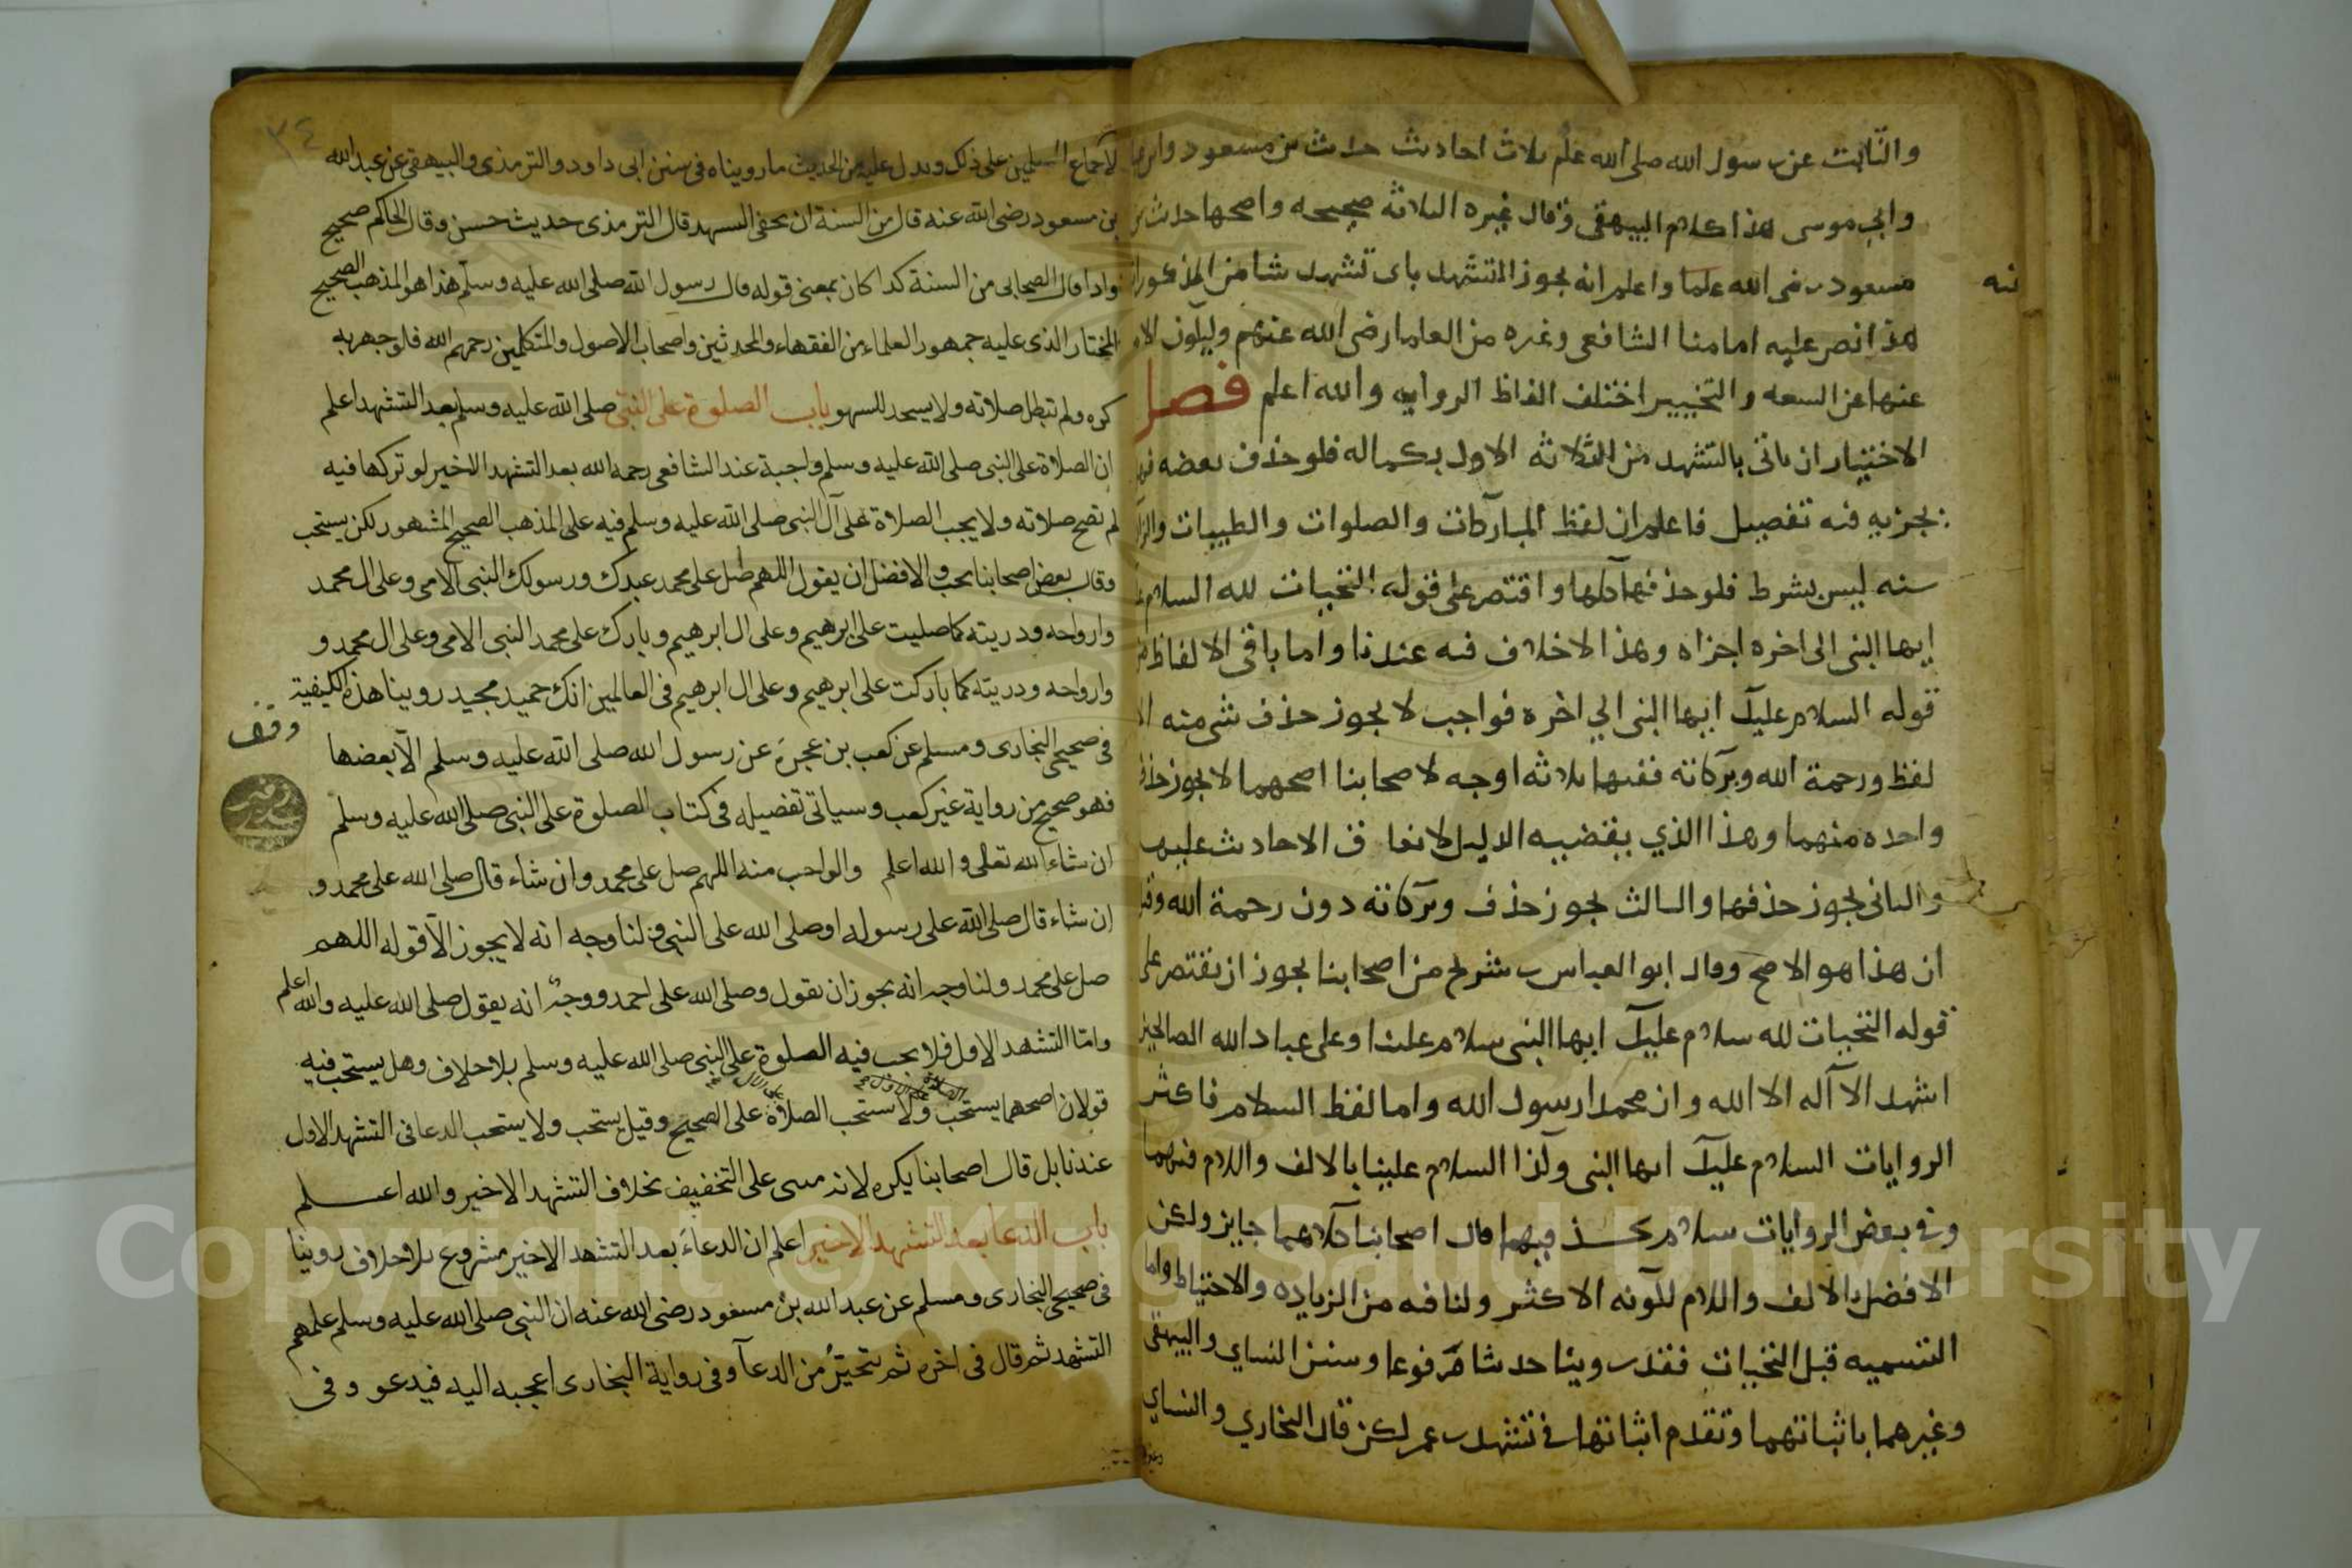 والثابت عن رسول الله صلى الله علم ثلاث احاديث حديث بن مسعود وابن
وابي موسى هذا كلام البيهقي وقال غيره الثلاثة صحيحه واصحها حديث بن
مسعود رضى الله علما واعلم انه يجوز التشهد باى تشهد شا من المذكور
هذا نص عليه امامنا الشافعى وغيره من العلما رضى الله عنهم
عنها عن السعه والتخيير اختلف الفاظ الروايه والله اعلم فصل
الاختيار ان ياتى بالتشهد من الثلاثه الاول بكماله فلو حذف بعضه فهل
يجزيه فيه تفصيل فاعلم ان لفظ المباركات والصلوات والطيبات
سنه ليس بشرط فلو حذفها كلها واقتصر على قوله التحيات لله السلام
ايها النبى الى اخره اجزاه وهذا لا خلاف فيه عندنا واما باقى الالفاظ
قوله السلام عليك ايها النبى الي اخره فواجب لا يجوز حذف شى منه الا
لفظ ورحمة الله وبركاته ففيها ثلاثه اوجه لاصحابنا اصحهما لا يجوز حذف
واحده منهما وهذا الذي يقتضيه الدليل لاتفاق الاحاديث عليها
والثانى يجوز حذفها والثالث يجوز حذف وبركاته دون رحمة الله
ان هذا هو الاصح وقال ابو العباس بن شريح من اصحابنا يجوز ان يقتصر على
قوله التحيات لله سلام عليك ايها النبى سلام علينا وعلى عباد الله الصالحين
اشهد الا آله الا الله وان محمدا رسول الله واما لفظ السلام فاكثر
الروايات السلام عليك ايها النبى وكذا السلام علينا بالالف واللام فيهما
وفى بعض الروايات سلام بحذف فيهما قال اصحابنا كلاهما جايز ولكن
الافضل بالالف واللام لكونه الاكثر ولما فيه من الزياده والاحتياط واما
التسميه قبل التحيات فقد روينا حديثا مرفوعا وسنن النساي والبيهقى
وغيرهما باثباتهما وتقدم اثباتها فى تشهد بن عمر لكن قال البخاري والنساي
لاجماع المسلمين على ذلك ويدل عليه من الحديث ما رويناه فى سنن ابى داود والترمذى والبيهقى عن عبد الله
بن مسعود رضى الله عنه قال من السنة ان يخفى التشهد قال الترمذى حديث حسن وقال الحاكم صحيح
واذا قال الصحابى من السنة كذا كان بمعنى قوله قال رسول الله صلى الله عليه وسلم هذا هو المذهب الصحيح
المختار الذى عليه جمهور العلماء من الفقهاء والمحدثين واصحاب الاصول والمتكلمين رحمهم الله فلو جهر به
كره ولم تبطل صلاته ولا يسجد للسهو باب الصلوة على النبى صلى الله عليه وسلم بعد التشهد اعلم
ان الصلاة على النبى صلى الله عليه وسلم واجبة عند الشافعى رحمه الله بعد التشهد الاخير لو تركها فيه
لم تصح صلاته ولا يجب الصلاة على آل النبى صلى الله عليه وسلم فيه على المذهب الصحيح المشهور لكن يستحب
وقال بعض اصحابنا يجب والافضل ان يقول اللهم صل على محمد عبدك ورسولك النبى الامى وعلى ال محمد
وازواجه وذريته كما صليت على ابرهيم وعلى ال ابرهيم وبارك على محمد النبى الامى وعلى ال محمد و
وازواجه وذريته كما باركت على ابرهيم وعلى ال ابرهيم فى العالمين انك حميد مجيد روينا هذه الكيفية
وقف
فى صحيحى البخارى ومسلم عن كعب بن عجرة عن رسول الله صلى الله عليه وسلم الا بعضها
فهو صحيح من رواية غير كعب وسياتى تفصيله فى كتاب الصلوة على النبى صلى الله عليه وسلم
ان شاء الله تعلى والله اعلم والواجب منه اللهم صل على محمد وان شاء قال صلى الله على محمد و
ان شاء قال صلى الله على رسوله او صلى الله على النبى ولنا وجه انه لا يجوز الا قوله اللهم
صل على محمد ولنا وجه انه يجوز ان يقول وصلى الله على احمد ووجه انه يقول صلى الله عليه والله اعلم
واما التشهد الاول فلا يجب فيه الصلوة على النبى صلى الله عليه وسلم بلا خلاف وهل يستحب فيه
قولان اصحهما يستحب ولا يستحب الصلاة على الصحيح وقيل يستحب ولا يستحب الدعا فى التشهد الاول
عندنا بل قال اصحابنا يكره لانه مبنى على التخفيف بخلاف التشهد الاخير والله اعلم
باب الدعا بعد التشهد الاخير اعلم ان الدعاء بعد التشهد الاخير مشروع بلا خلاف روينا
فى صحيحى البخارى ومسلم عن عبد الله بن مسعود رضى الله عنه ان النبى صلى الله عليه وسلم علمهم
التشهد ثم قال فى اخره ثم يتخير من الدعا وفى رواية البخارى اعجبه اليه فيدعو وفى
Copyright © King Saud University